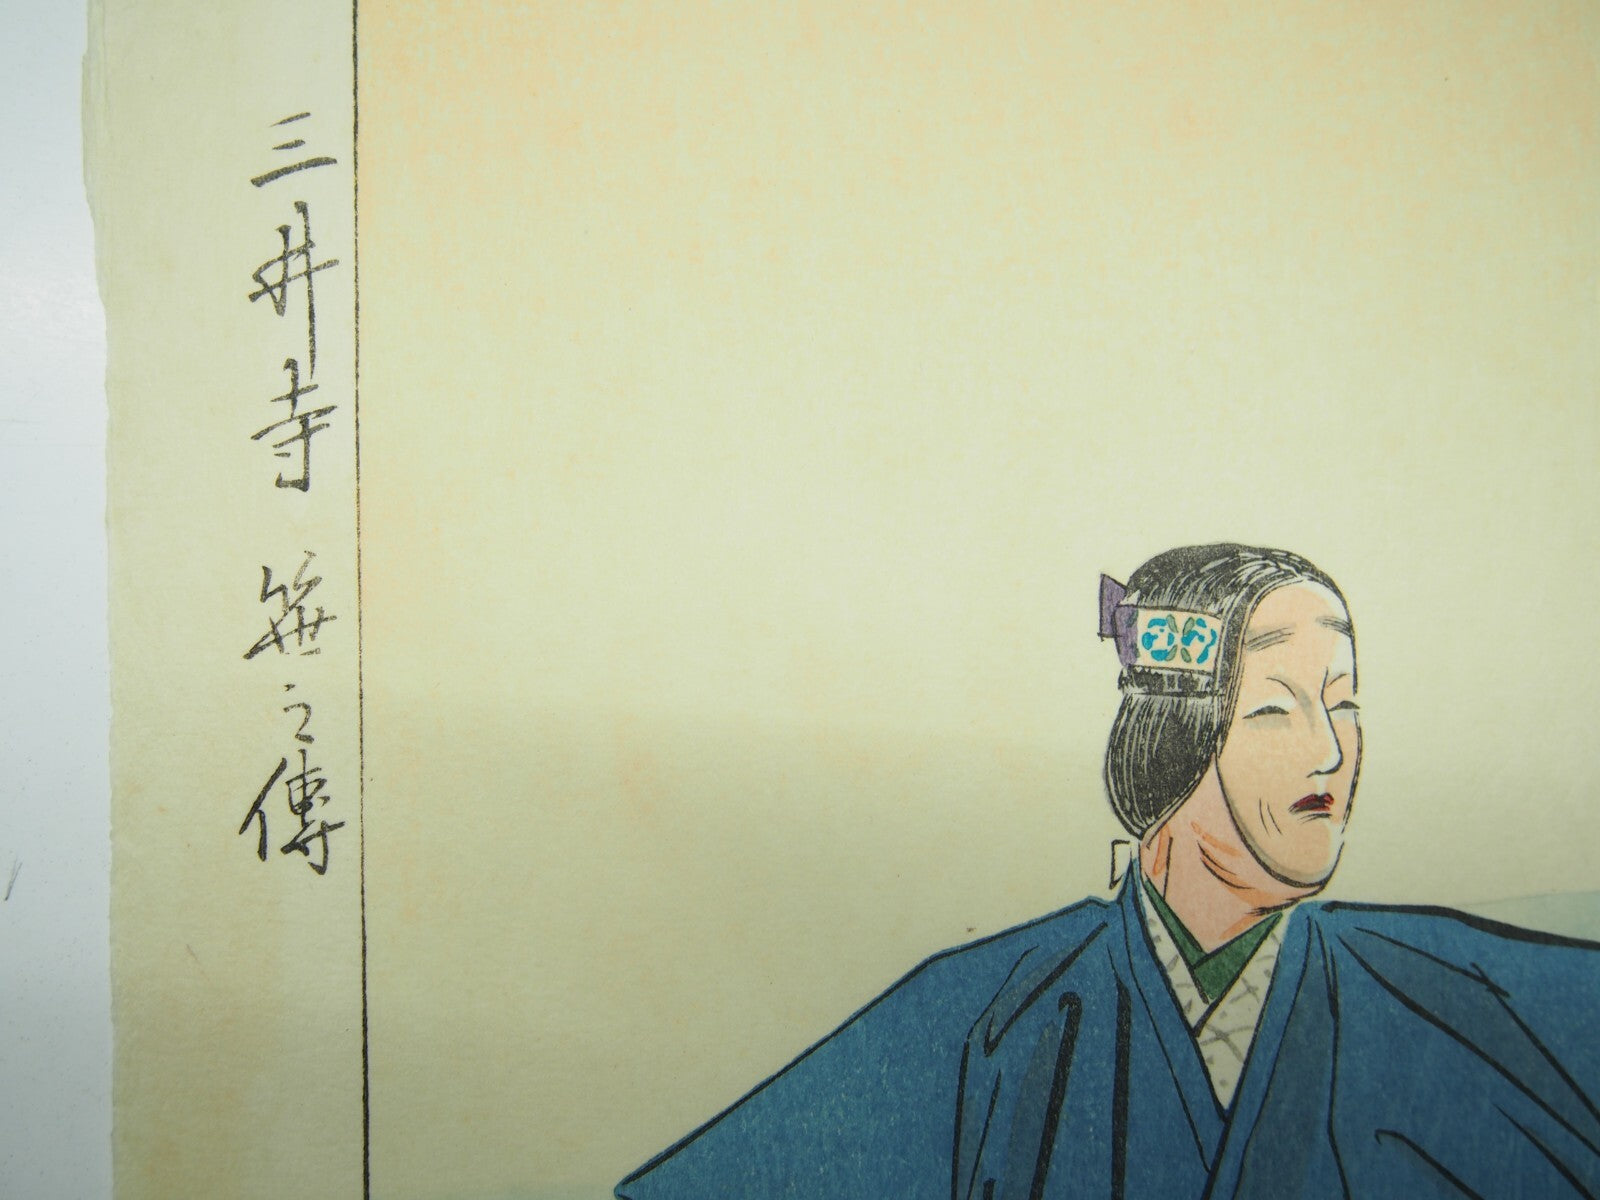 三井寺 笹之傳